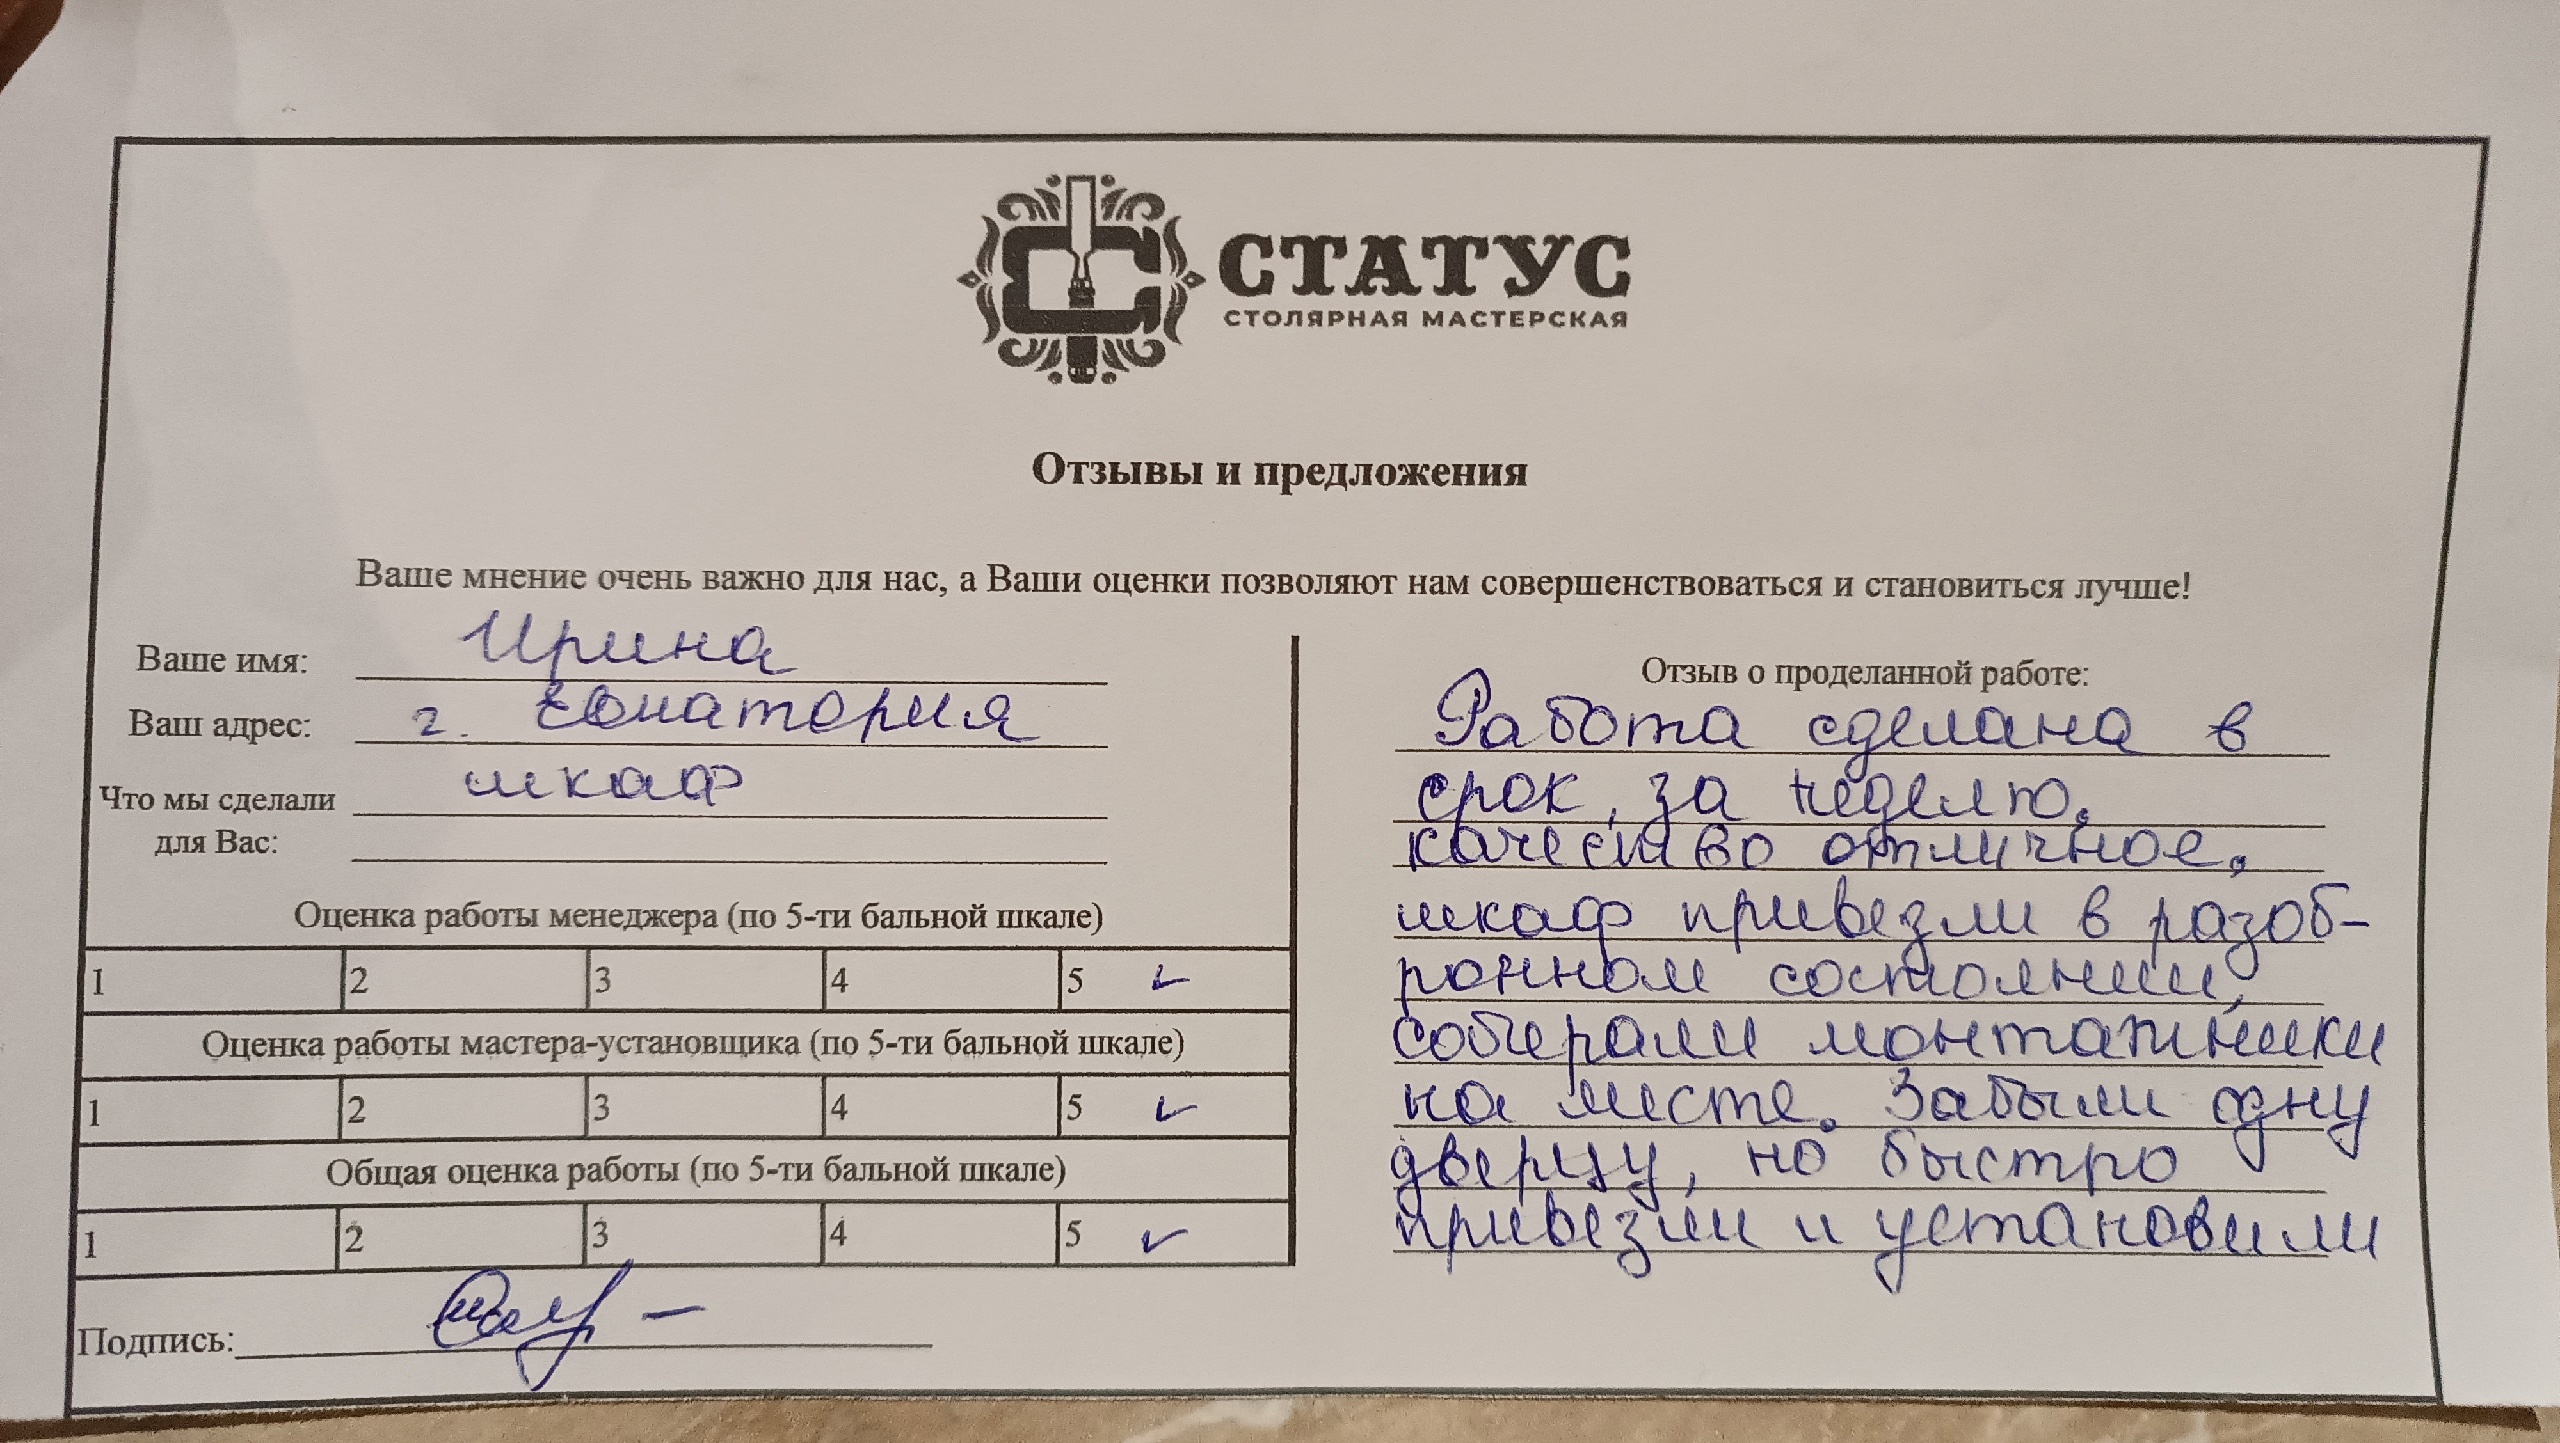 СТАТУС
СТОЛЯРНАЯ МАСТЕРСКАЯ
Отзывы и предложения
Ваше мнение очень важно для нас, а Ваши оценки позволяют нам совершенствоваться и становиться лучше!
Ваше имя: Ирина
Ваш адрес: г. Евпатория
Что мы сделали шкаф
для Вас:
Оценка работы менеджера (по 5-ти бальной шкале)
1 2 3 4 5 ✓
Оценка работы мастера-установщика (по 5-ти бальной шкале)
1 2 3 4 5 ✓
Общая оценка работы (по 5-ти бальной шкале)
1 2 3 4 5 ✓
Подпись:
Отзыв о проделанной работе:
Работа сделана в
срок, за неделю.
качество отличное.
шкаф привезли в разоб-
ранном состоянии,
собирали монтажники
на месте. Забыли одну
дверцу, но быстро
привезли и установили